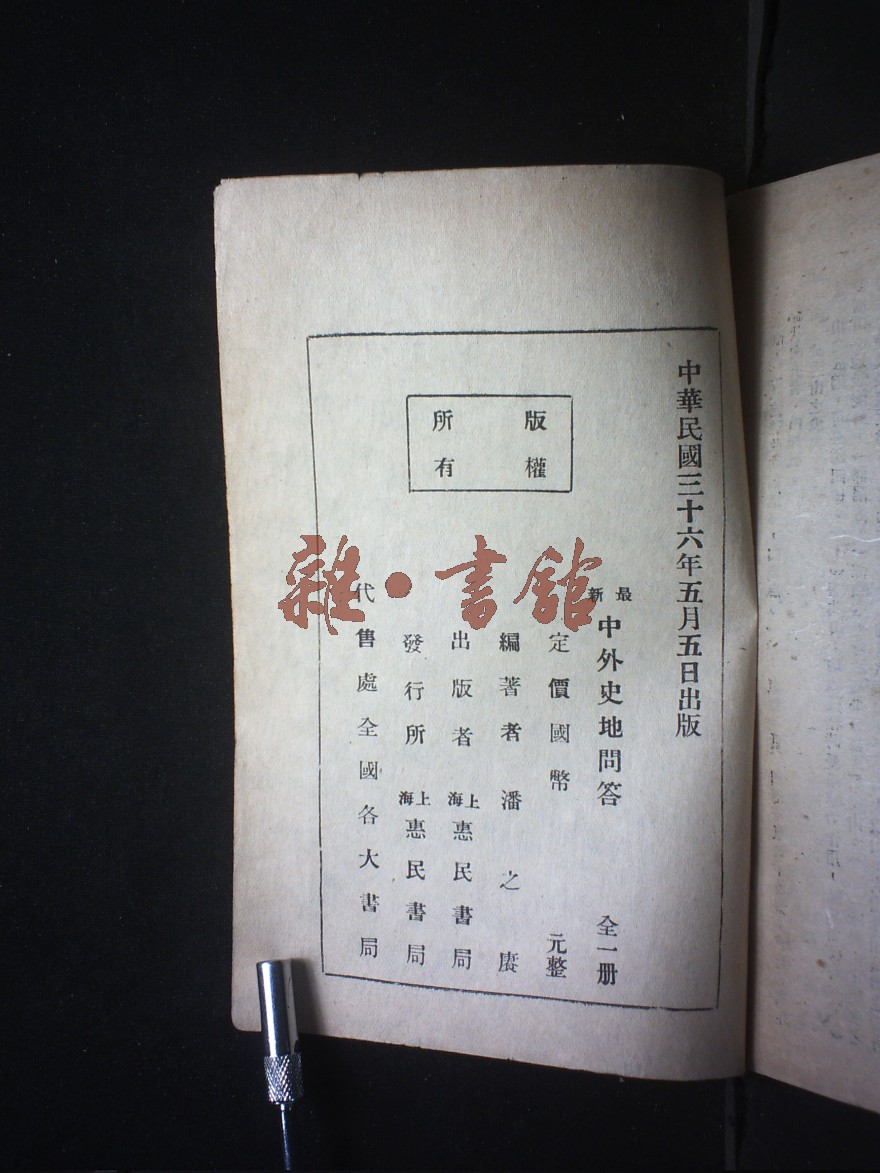 中華民國三十六年五月五日出版
版權
所有
最新中外史地問答 全一册
定價國幣 元整
編著者 潘之賡
出版者 上海惠民書局
發行所 上海惠民書局
代售處全國各大書局
雜·書館